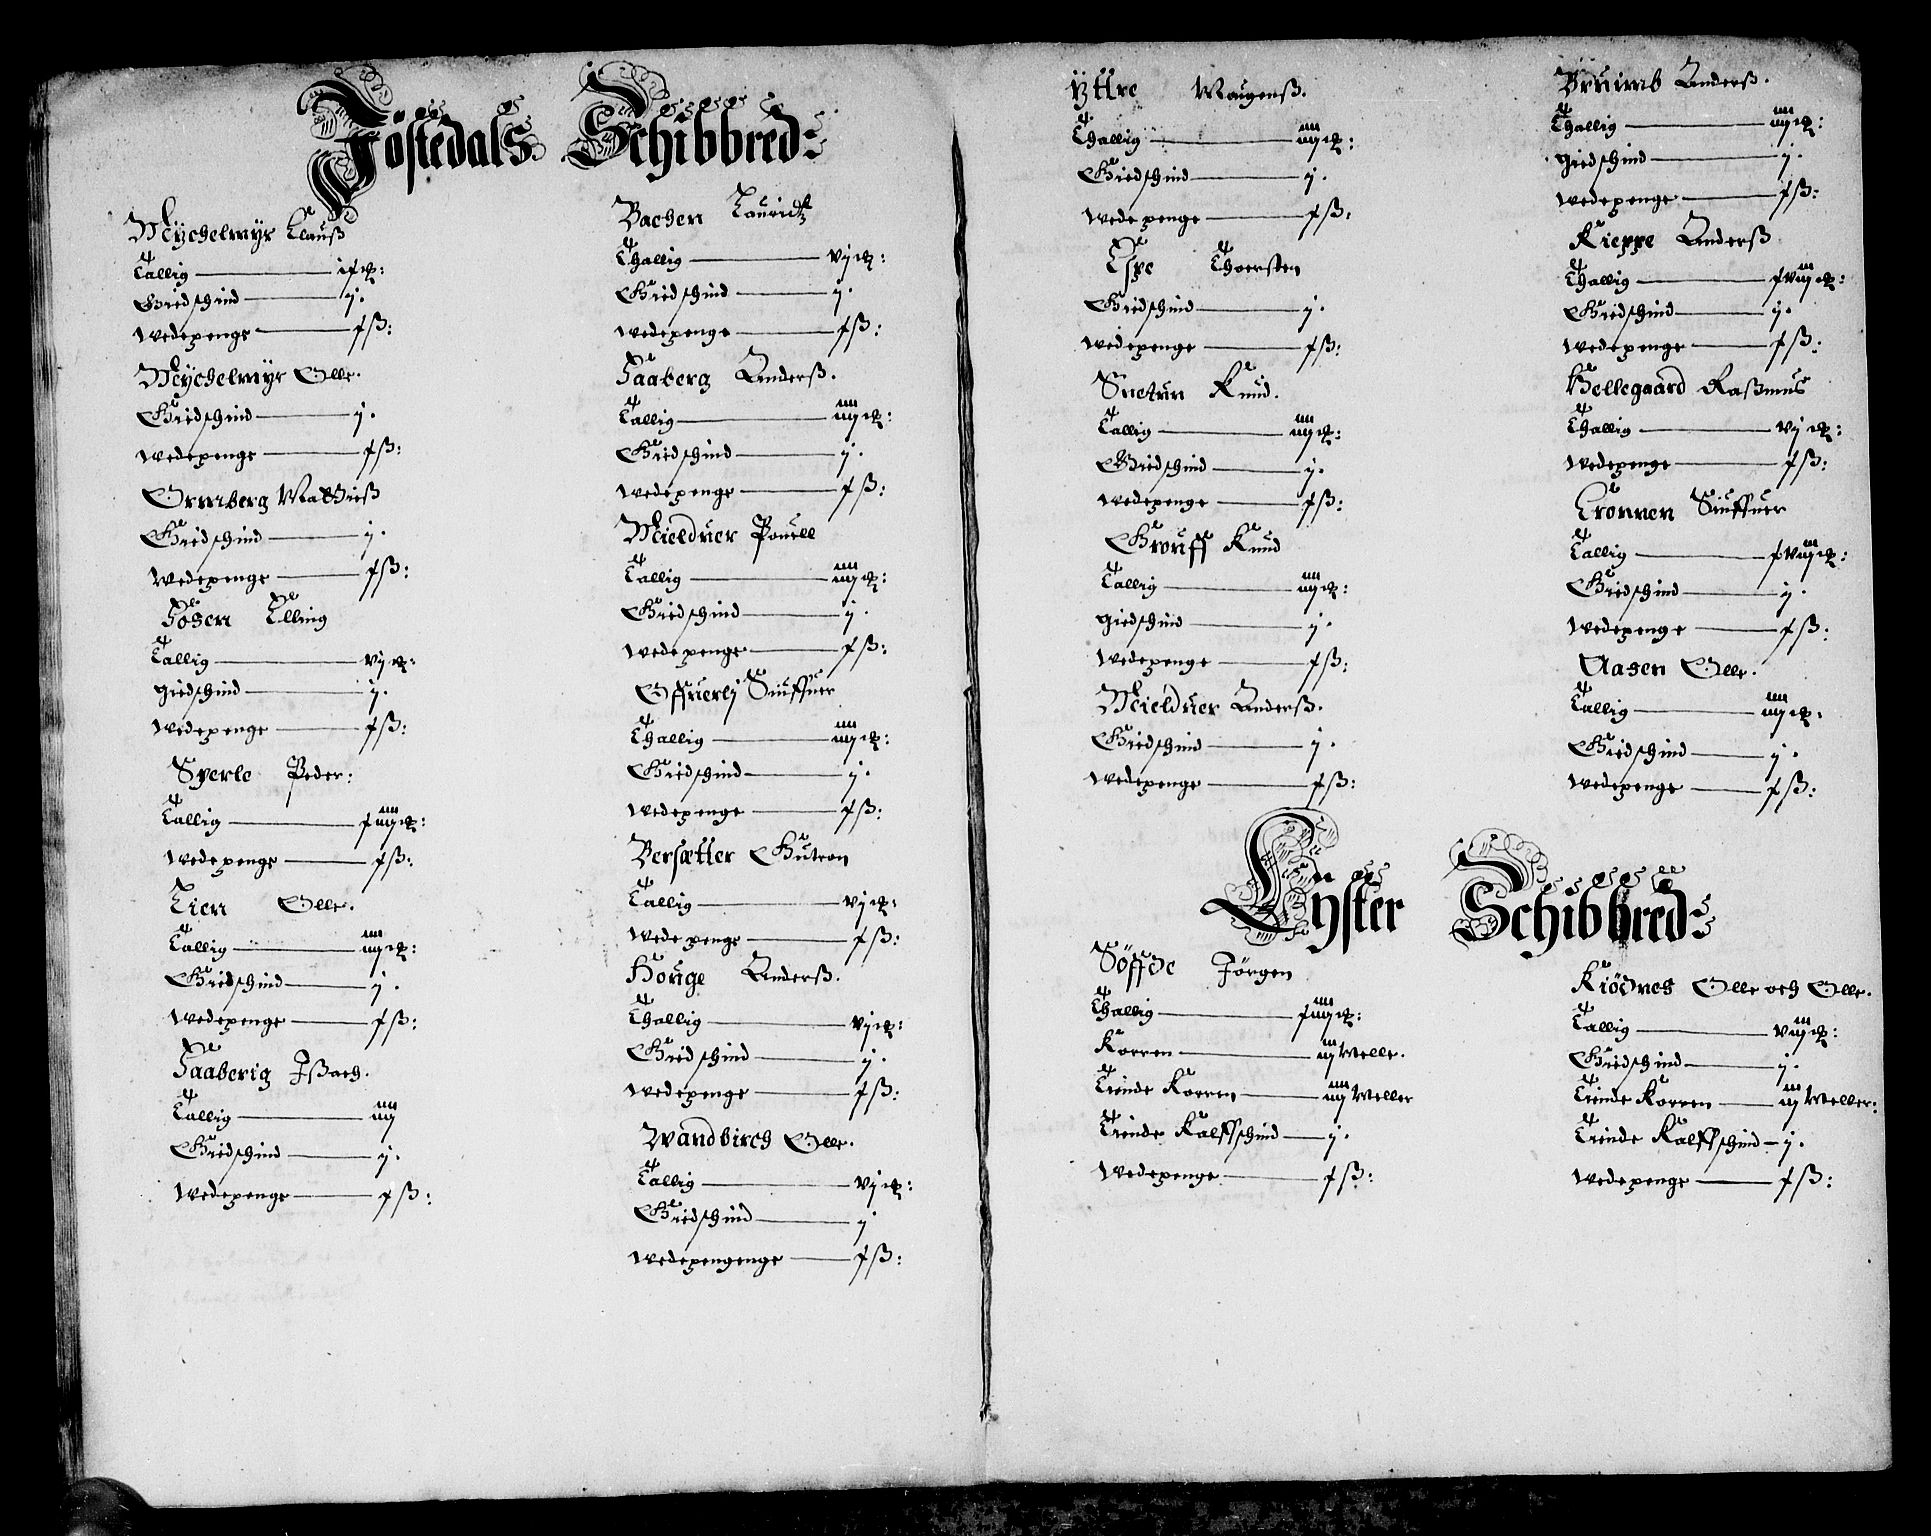 Jöstedals Schibbred:
Mychelmyr Clauß
Tallig — j℔:
Giedschind — ij.
wedepenge — j ß:
Mychelmyr Olle.
Giedschind — ij.
wedepenge — j ß:
Ormberg Mathieß
Giedschind — ij.
wedepenge — j ß:
Fosen Elling
Tallig — vj ℔:
giedschind — ij.
wedepenge — j ß:
Sperle Peder:
Tallig — jiiij℔:
wedepenge — j ß:
Lien Olle.
Tallig — iiij℔:
Giedschind — ij.
wedepenge — j ß:
Faaberig Jßach.
Tallig — iiij
Giedschind — ij.
wedepenge — j ß:
Bachen Lauridtz
Thallig — vj ℔:
Giedschind — ij.
wedepenge — j ß:
Faaberg Anderß.
Tallig — iiij℔:
Giedschind — ij.
wedepenge — j ß:
Mielduer Pouell
Tallig — iiij℔:
Giedschind — ij.
wedepenge — j ß:
Offuerlj Siuffuer
Thallig — iiij℔:
Giedschind — ij.
wedepenge — j ß:
Bersætter Gutron
Tallig — vj ℔:
wedepenge — j ß:
Houge Anderß.
Thallig — vj ℔:
Giedschind — ij.
wedepenge — j ß:
Wandbirch Olle.
Tallig — vj ℔:
Giedschind — ij
wedepengenge — j ß:
Yttre Maugenß.
Thallig — iiij℔:
Giedschind — ij.
wedepenge — j ß:
Espe Thoersten
Giedschind — ij.
wedepenge — j ß:
Snetun Knud.
Tallig — iiij℔:
Giedschind — ij.
wedepenge — j ß:
Grouff Knud
Tallig — iiij℔:
giedschind — ij.
wedepenge — j ß:
Mielduer Anderß.
Giedschind — ij.
wedepenge — j ß:
Bruimb Anderß.
Thallig — iiij℔:
giedschind — ij.
wedepenge — j ß:
Kieppe Anderß
Thallig — jviij℔:
Giedschind — ij.
wedepenge — j ß:
Hellegaard Raßmus
Thallig — vj ℔:
wedepenge — j ß:
Cronnen Siuffuer
Tallig — jviij℔:
Giedschind — ij.
wedepenge — j ß:
Aasen Olle.
Tallig — iiij℔:
Giedschind — ij.
wedepenge — j ß:
Lyster Schibbred:
Söffde Jörgen
Thallig — jiiij℔:
Korren — iij Meller.
Tiende Korren — iiij Meller
Tiende Kalffschind — ij.
wedepenge — j ß:
Kiödnes Olle och Olle.
Tallig — viij℔:
Giedschind — ij.
Tiende Korren — iiij Meller:
Tiende Kalffschind — ij.
wedepenge — j ß: